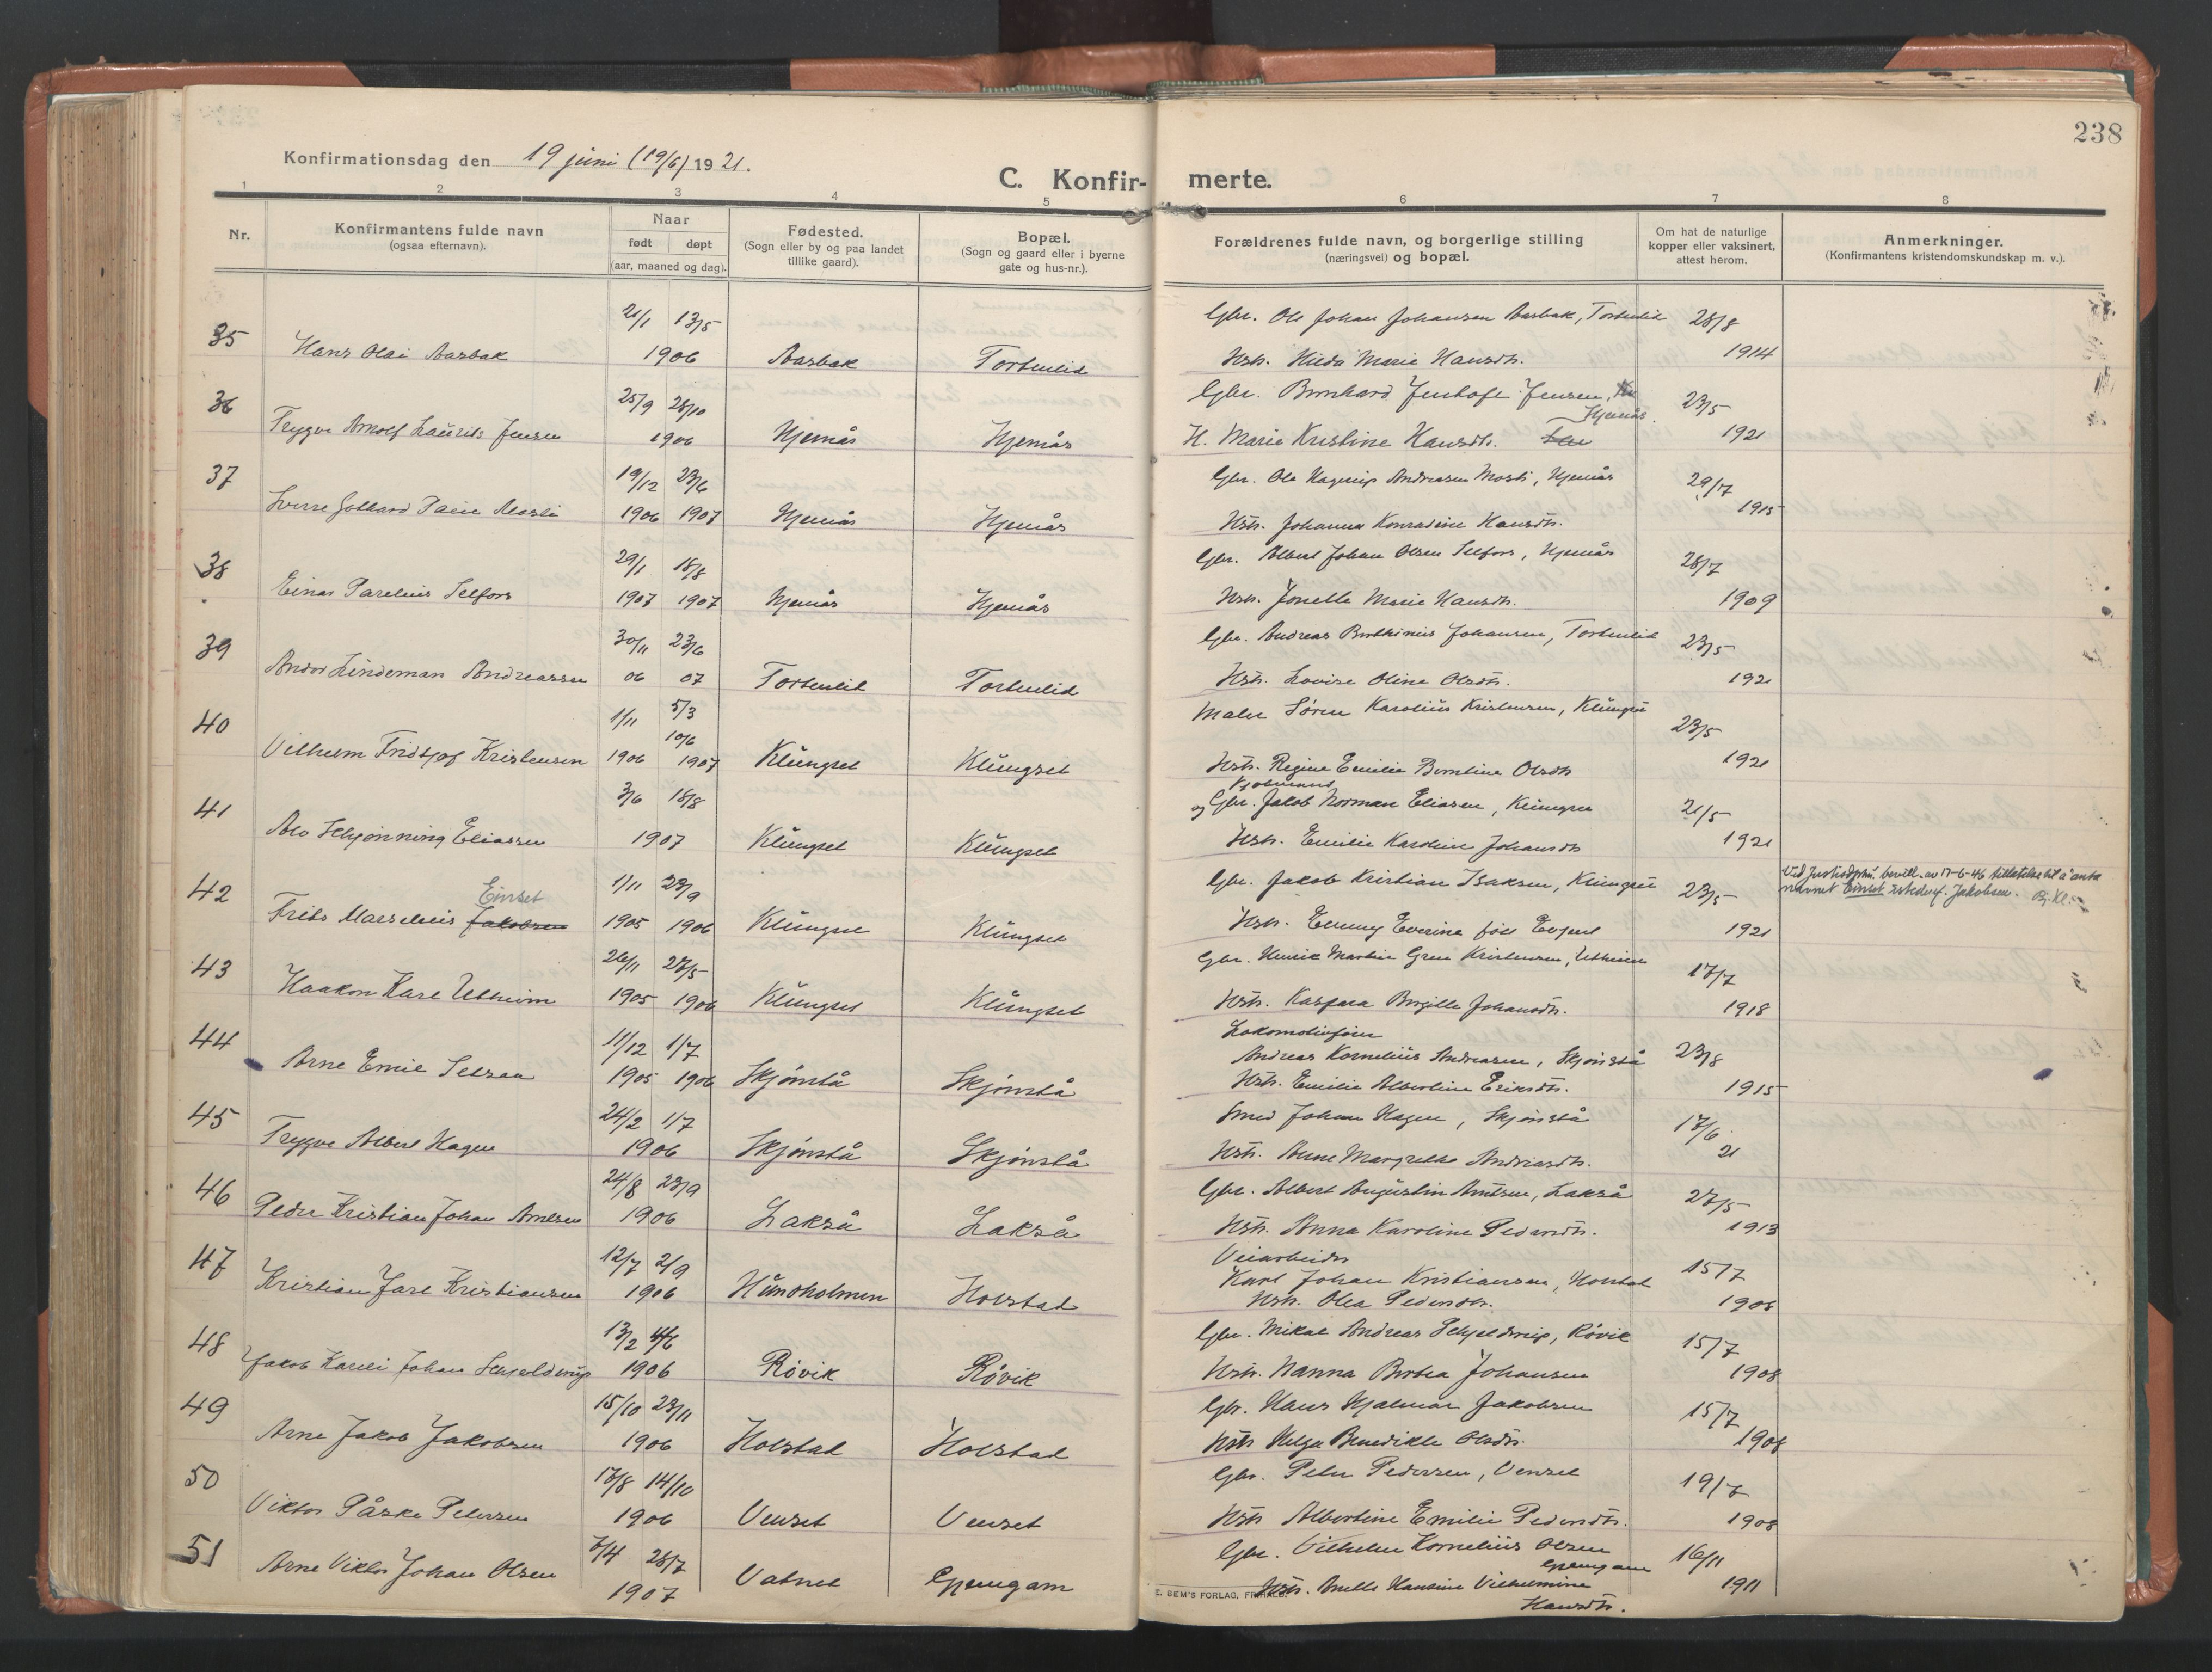 238
Konfirmationsdag den 19 juni (19/6) 1921.
C. Konfir- merte.
1 2 3 4 5 6 7 8
Nr.
Konfirmantens fulde navn
(ogsaa efternavn).
Naar
født døpt
(aar, maaned og dag).
Fødested.
(Sogn eller by og paa landet
tillike gaard).
Bopæl.
(Sogn og gaard eller i byerne
gate og hus-nr.).
Forældrenes fulde navn, og borgerlige stilling
(næringsvei) og bopæl.
Om hat de naturlige
kopper eller vaksinert,
attest herom.
Anmerkninger.
(Konfirmantens kristendomskundskap m. v.).
35 21/1 13/5 Gbr. Ole Johan Johansen Aasbak, 28/8
Hans Olai Aasbak 1906 Aasbak Hstr. Hilda Marie Hansdtr. 1914
36 25/9 28/10 Gbr. Jensen, 23/5
Hjemås.
Trygve Arnolf Laurits Jensen 1906 Hjemås Hjemås H. Marie Kristine Hansdtr. 1921
37 19/12 23/6 Gbr. Ole Hagerup Andreasen Mosti, Hjemås 29/7
Sverre 1906 1907 Hjemås Hjemås Hstr. Johanna Konradine Hansdtr. 1915
38 29/1 18/8 Gbr. Albert Johan Olsen Selfors, Hjemås 28/7
Einar Parelius Selfors 1907 1907 Hjemås Hjemås Hstr. Jonette Marie Hansdtr. 1909
39 30/11 23/6 Gbr. Andreas Johansen, 23/5
Andor Lindeman Andreassen 06 07 Hstr. Lovise Oline Olsdtr. 1921
40 1/11 5/3 Maler Søren Karolius Kristensen, Klungset 23/5
10/6
Vilhelm Fridtjof Kristensen 1906 1907 Klungset Klungset Hstr. Regine Emilie Berntine Olsdtr 1921
41 3/6 18/8 og Gbr. Jakob Norman Eliasen, Klungset 21/5
Alv Schjønning Eliassen 1907 Klungset Klungset Hstr. Emilie Karoline Johansdtr 1921
42 Einset 1/11 23/9 Gbr. Jakob Kristian Isaksen, Klungset 23/5 Ved Justisdptm. bevill. av 17-6-46 tillatelse til å anta
navnet Einset istedenf. Jakobsen.
Frits Marselius Jakobsen 1905 1906 Klungset Klungset Hstr. Emmy Everine født Evjent 1921
43 26/11 27/5 Gbr. Henrik Martin Kristensen, Utheim 17/7
Haakon Kare Utheim 1905 1906 Klungset Klungset Hstr. Kaspara Birgitte Johansdtr. 1918
44 11/12 1/7 Lokomotivfører
Andreas Kornelius Andreasen, Skjønstå 23/8
Arne Emil Setsaa 1905 1906 Skjønstå Skjønstå Hstr. Emilie Albertine Eriksdtr. 1915
45 24/2 1/7 Smed Johan Hagen, Skjønstå 17/6
Trygve Albert Hagen 1906 Skjønstå Skjønstå Hstr. Anne Margrethe Andreasdtr. 21
46 24/8 23/9 Gbr. Albert Augustin Arntsen, Lakså 27/5
Peder Kristian Johan Arntsen 1906 Lakså Lakså Hstr. Anna Karoline Pedersdtr. 1913
47 12/7 2/9 Veiarbeider
Karl Johan Kristiansen, Holstad 15/7
Kristian Jarl Kristiansen 1906 Hundholmen Holstad Hstr. Olea Pedersdtr. 1908
48 13/2 4/6 Gbr. Mikal Andreas Schjelderup, Røvik 15/7
Jakob Kareli Johan Schjelderup 1906 Røvik Røvik Hstr. Nanna Bertea Johansen 1908
49 15/10 23/11 Gbr. Hans Hjalmar Jakobsen 15/7
Arne Jakob Jakobsen 1906 Holstad Holstad Hstr Helga Benedikte Olsdtr. 1908
50 17/8 14/10 Gbr. Peter Pedersen, Venset 19/7
Viktor Påske Petersen 1906 Venset Venset Hstr Albertine Emilie Pedersdtr. 1908
51 7/4 28/7 Gbr. Vilhelm Kornelius Olsen 16/11
Gjemgam
Arne Viktor Johan Olsen 1907 Vatnet Gjemgam Hstr. Hansine Vilhelmine 1911
Hansdtr.
E. SEM'S FORLAG,